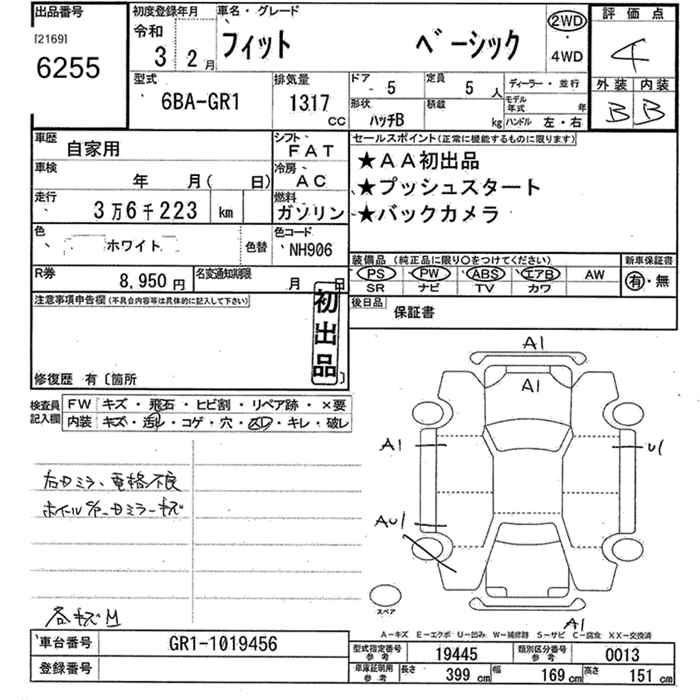 出品番号
[2169]
6255
初度登録年月
令和
3 2月
車名・グレード
フィット ベーシック
2WD
・
4WD
評価点
4
外装 内装
B B
型式
6BA-GR1
排気量
1317 CC
ドア 5
定員 5人
ディーラー・並行
形状 ハッチB
積載 kg
モデル年式 年
ハンドル 左・右
車歴 自家用
シフト FAT
セールスポイント(正常に機能するものに限ります)
★AA初出品
★プッシュスタート
★バックカメラ
車検 年 月( 日)
冷房 AC
走行 3万6千223 km
燃料 ガソリン
色 ホワイト 色替
色コード NH906
装備品 (純正品に限り○をつけてください)
PS PW ABS エアB AW
SR ナビ TV カワ
新車保証書
有・無
R券 8,950円
名変通知期限 月 日
後日品 保証書
注意事項申告欄(不具合内容等は具体的に記入して下さい)
初出品
修復歴 有〔箇所 〕
検査員記入欄
FW キズ・飛石・ヒビ割・リペア跡・×要
内装 キズ・汚レ・コゲ・穴・スレ・キレ・破レ
右ドミラー電格不良
ホイールキズ、ドミラーキズ
各キズM
A1
A1
A1
U1
AU1
A1
スペア
A-キズ E-エクボ U-凹み W-補修跡 S-サビ C-腐食 XX-交換済
車台番号 GR1-1019456
登録番号
型式指定番号 参考 19445
類別区分番号 参考 0013
車庫証明用 参考 長さ 399 cm 幅 169 cm 高さ 151 cm